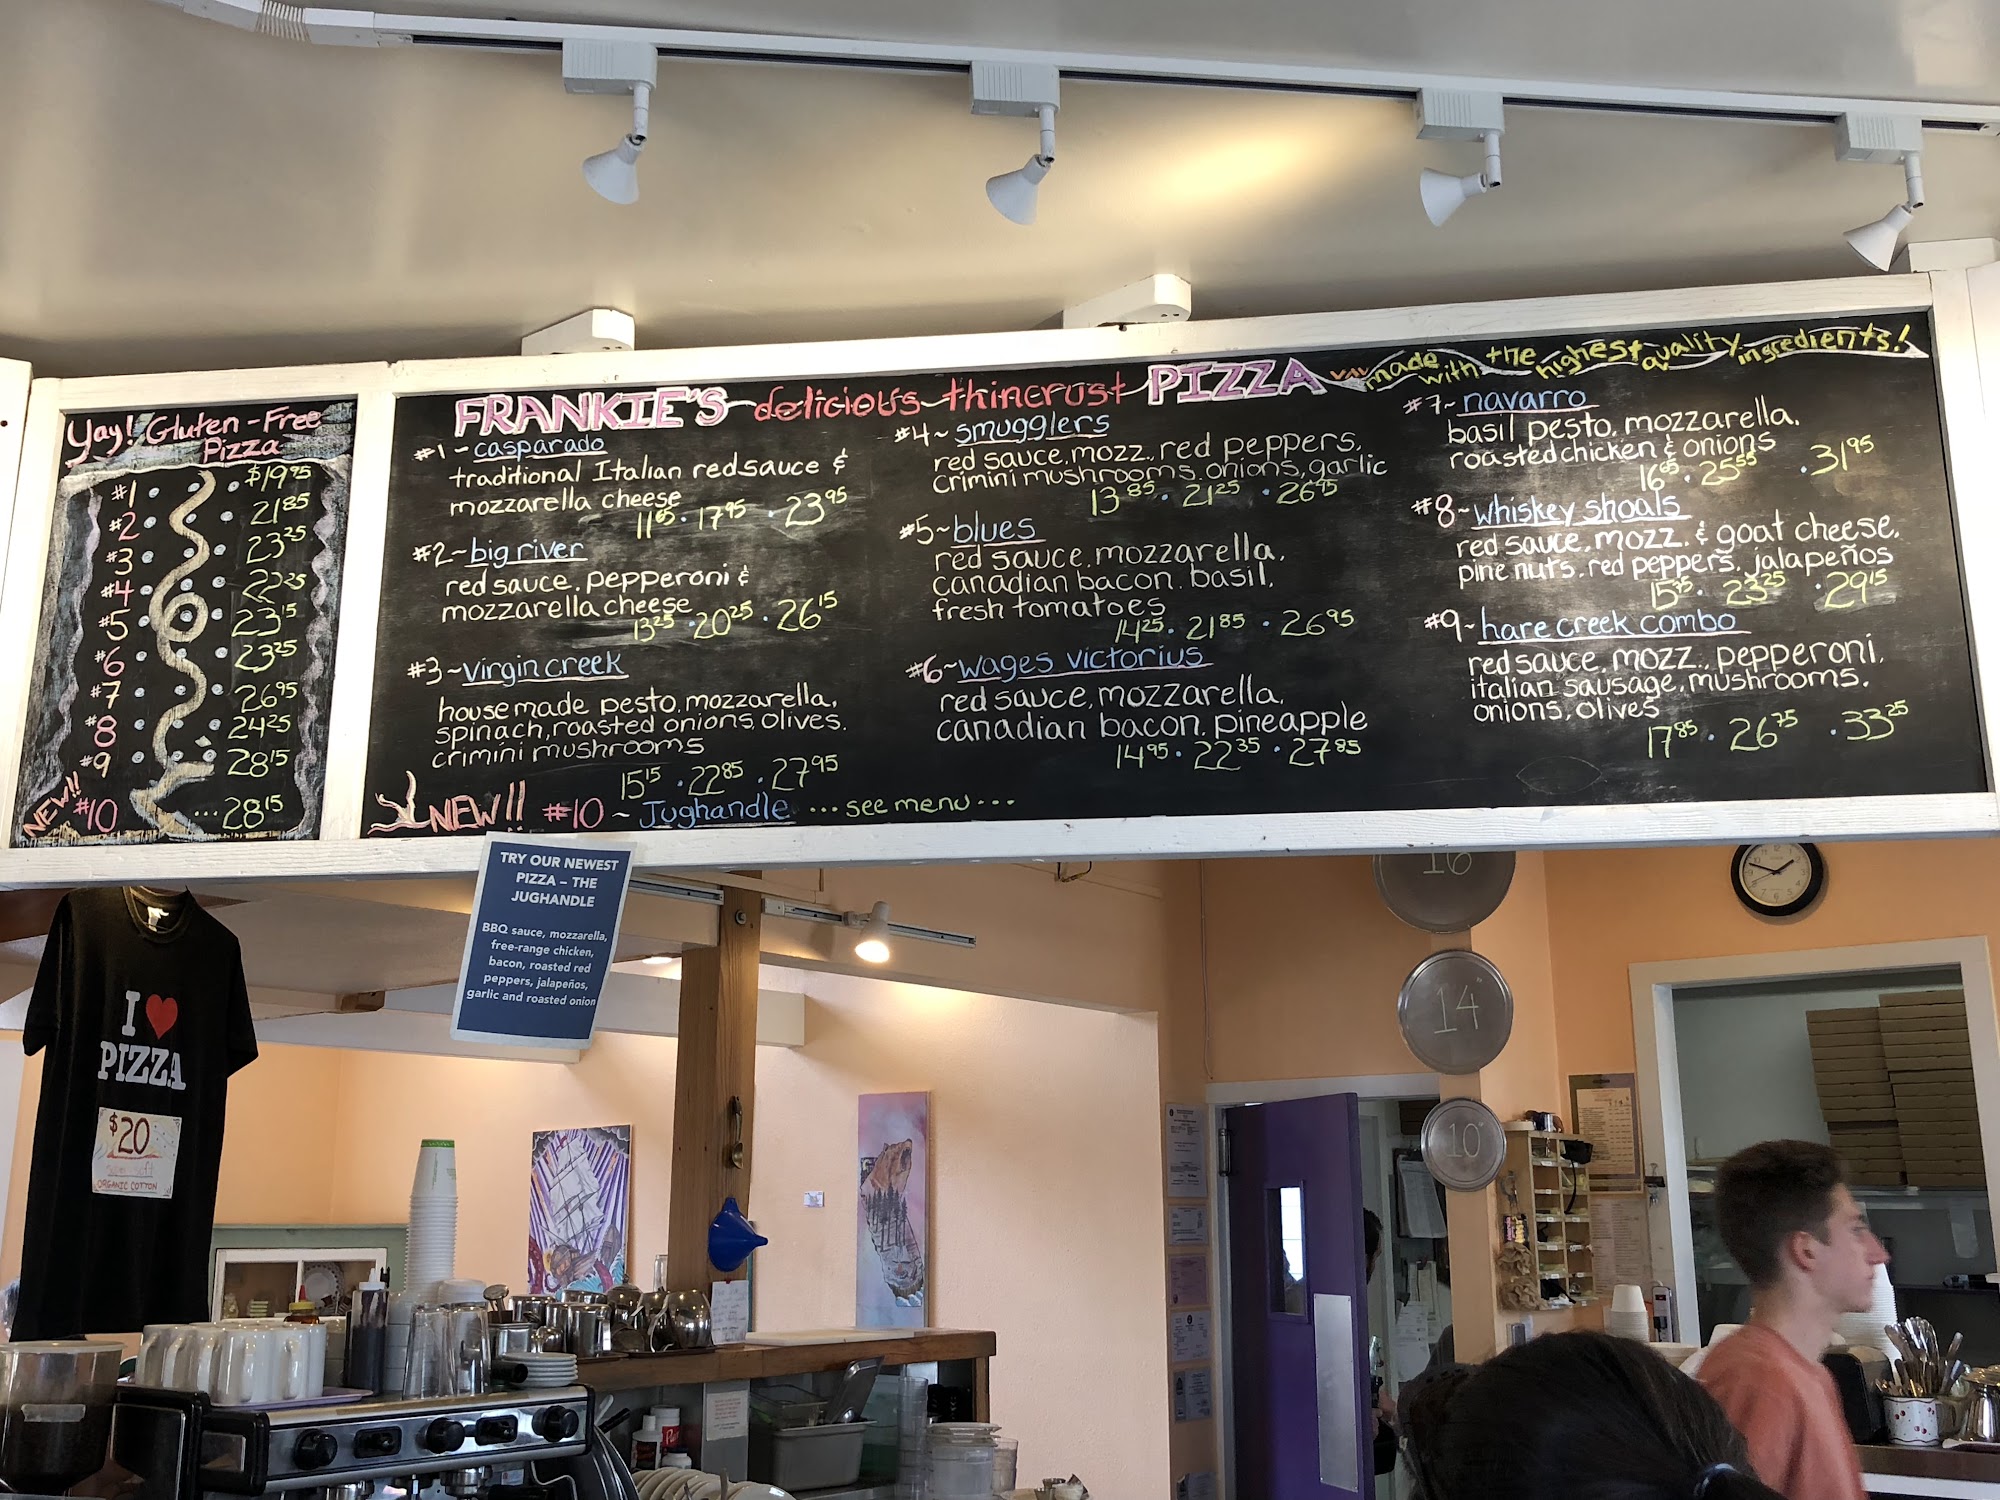 Yay! Gluten-Free
Pizza
#1 $19.95
#2 21.85
#3 23.25
#4 22.25
#5 23.15
#6 23.25
#7 26.95
#8 24.25
#9 28.15
NEW!! #10 ...28.15
FRANKIE'S delicious thincrust PIZZA made with the highest quality ingredients!
#1~casparado
traditional Italian red sauce &
mozzarella cheese
17.95 · 23.95
#2~big river
red sauce, pepperoni &
mozzarella cheese
13.25 · 20.25 · 26.15
#3~Virgin creek
house made pesto, mozzarella,
spinach, roasted onions, olives,
crimini mushrooms
15.15 · 22.85 · 27.95
NEW!! #10 ~ Jughandle ...see menu...
#4~smugglers
red sauce, mozz., red peppers,
crimini mushrooms, onions, garlic
13.85 · 21.25 · 26.95
#5~blues
red sauce, mozzarella,
canadian bacon, basil,
fresh tomatoes
14.25 · 21.85 · 26.95
#6~wages victorius
red sauce, mozzarella,
canadian bacon, pineapple
14.95 · 22.35 · 27.85
#7~navarro
basil pesto, mozzarella,
roasted chicken & onions
25.55 · 31.95
#8~whiskey shoals
red sauce, mozz. & goat cheese,
pine nuts, red peppers, jalapeños
23.25 · 29.15
#9~hare creek combo
red sauce, mozz., pepperoni,
italian sausage, mushrooms,
onions, olives
17.85 · 26.75 · 33.25
TRY OUR NEWEST
PIZZA – THE
JUGHANDLE
BBQ sauce, mozzarella,
free-range chicken,
bacon, roasted red
peppers, jalapeños,
garlic and roasted onion
I ♥
PIZZA
$20
ORGANIC COTTON
16
14"
10"